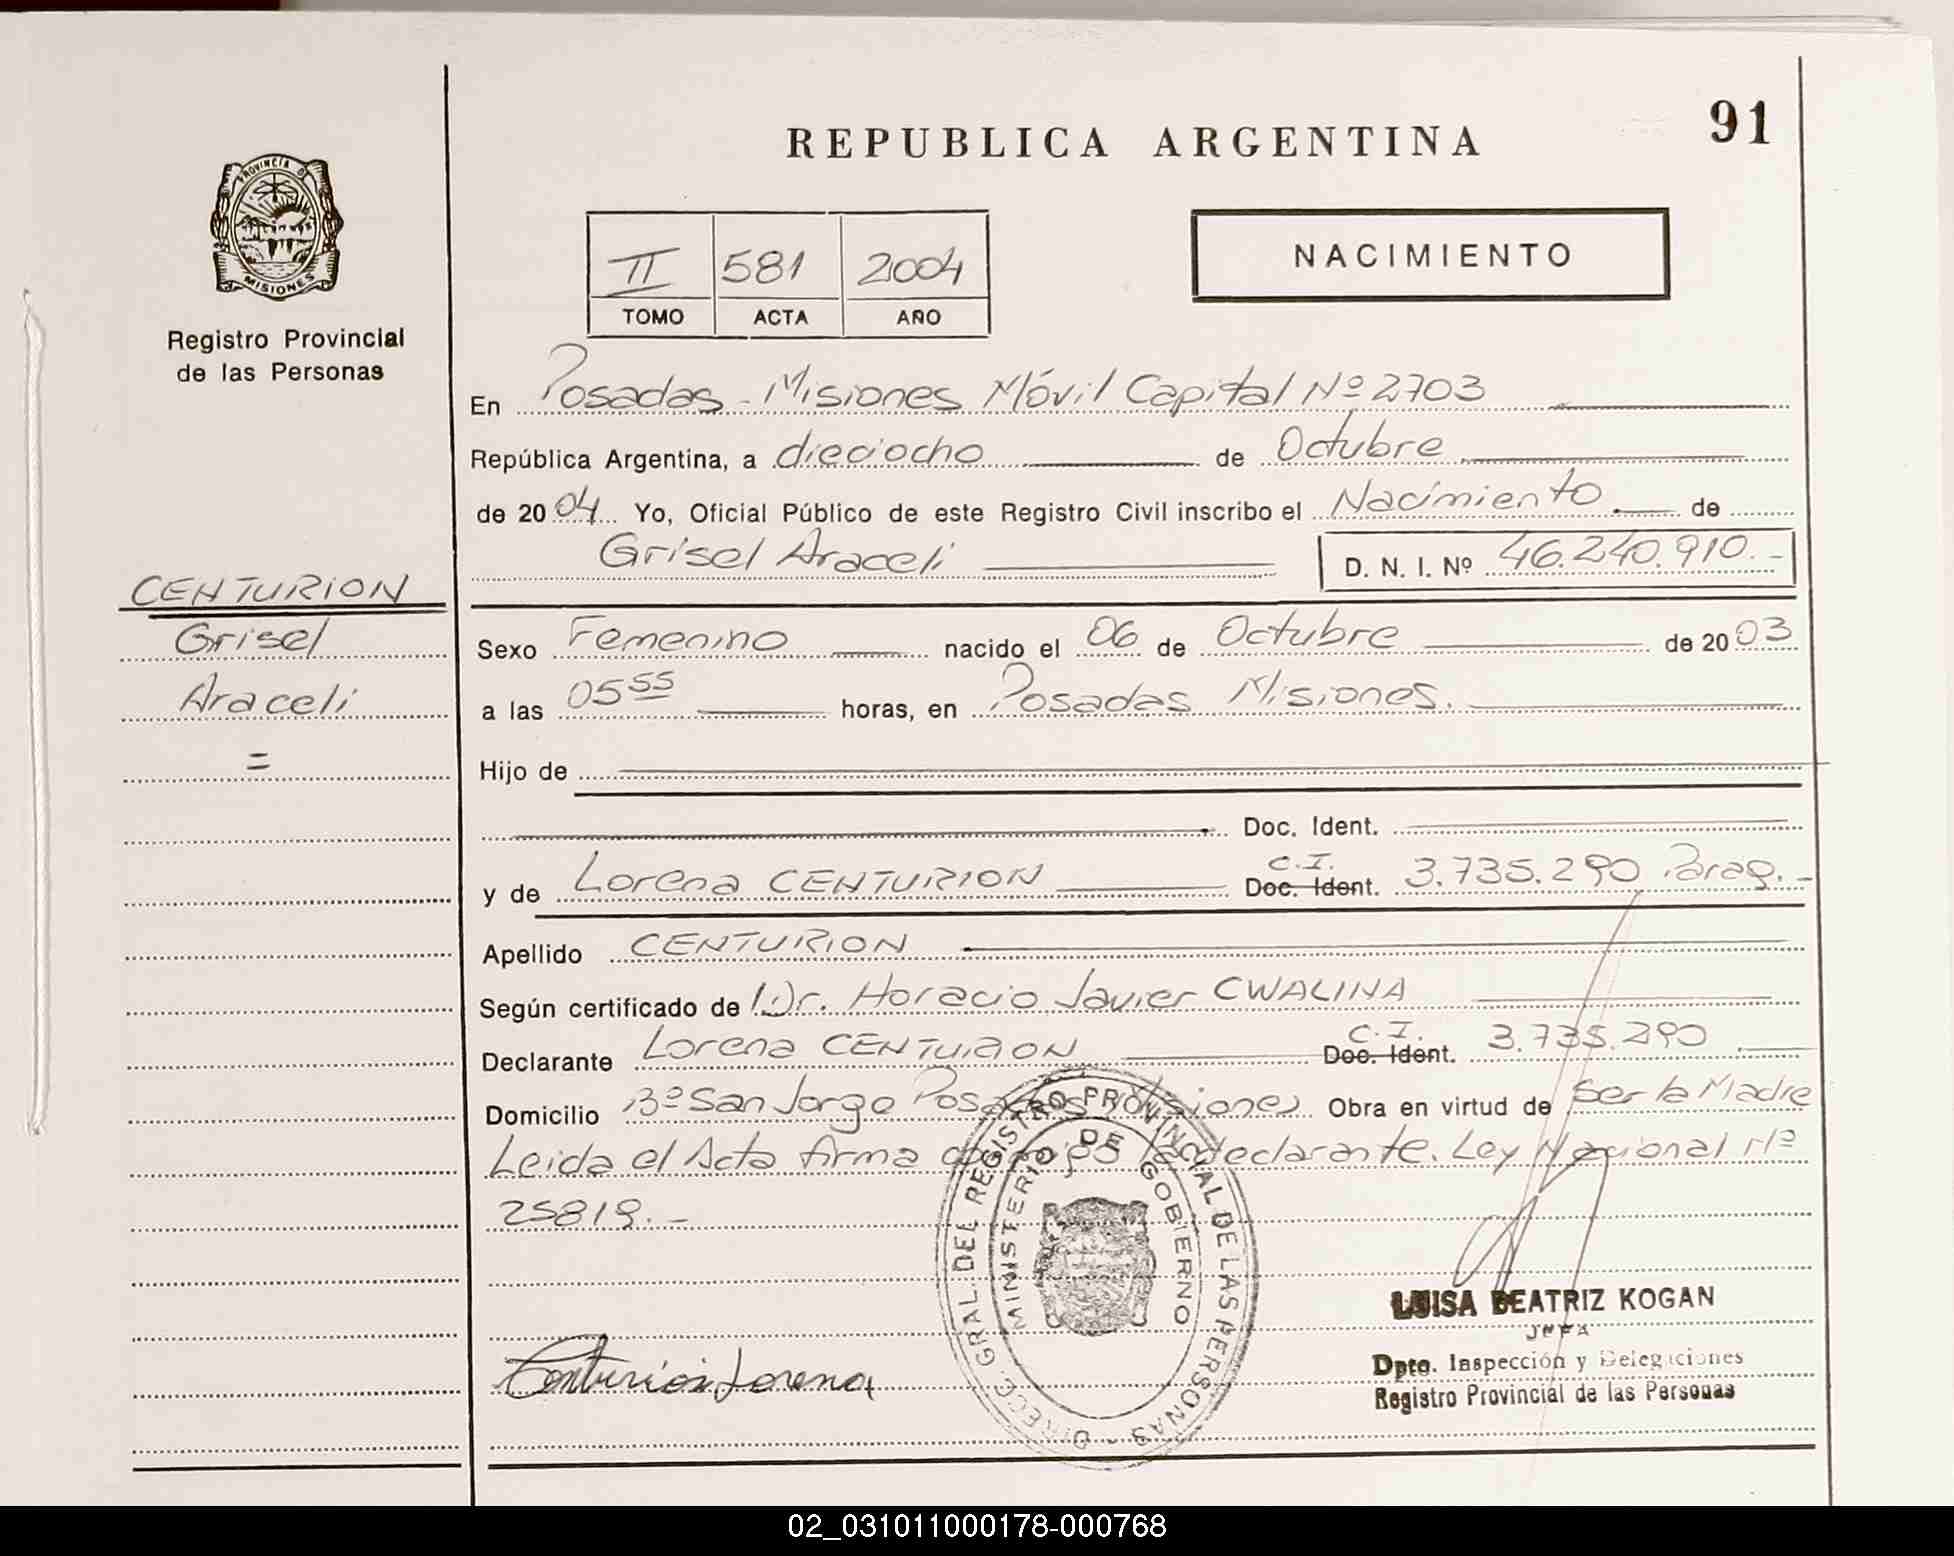 91
REPUBLICA ARGENTINA
PROVINCIA DE
MISIONES
Registro Provincial
de las Personas
II 581 2004
TOMO ACTA AÑO
NACIMIENTO
En Posadas - Misiones Móvil Capital Nº 2703
República Argentina, a dieciocho de Octubre
de 2004 Yo, Oficial Público de este Registro Civil inscribo el Nacimiento de
Grisel Araceli D. N. I. Nº 46.240.910.-
CENTURION
Grisel
Araceli
=
Sexo Femenino nacido el 06 de Octubre de 2003
a las 05 55 horas, en Posadas Misiones.
Hijo de
Doc. Ident.
y de Lorena CENTURION C.I. Doc. Ident. 3.735.290 Parag.-
Apellido CENTURION
Según certificado de Dr. Horacio Javier CWALINA
Declarante Lorena CENTURION C.I. Doc. Ident. 3.735.290
Domicilio Bº San Jorge Posadas Misiones Obra en virtud de ser la Madre
Leida el Acta firma conmigo la declarante. Ley Nacional Nº
25819.-
DIRECC. GRAL. DEL REGISTRO PROVINCIAL DE LAS PERSONAS -
MINISTERIO DE GOBIERNO
Centurión Lorena
LUISA BEATRIZ KOGAN
JEFA
Dpto. Inspección y Delegaciones
Registro Provincial de las Personas
02_031011000178-000768